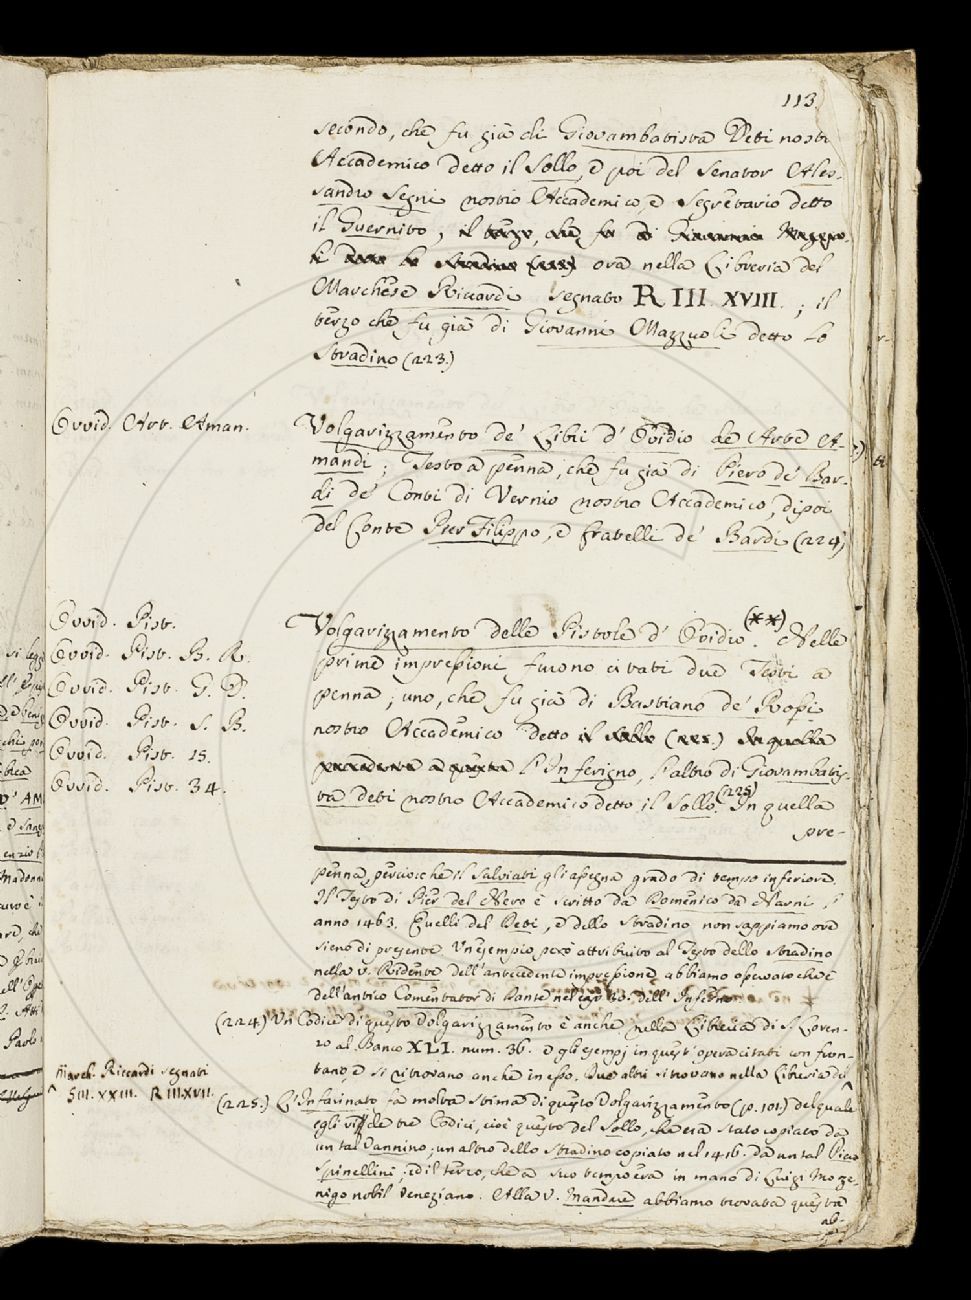 113
secondo, che fu già di Giovambatista Deti nostro
Accademico detto il Sollo, e poi del Senator Ales-
sandro Segni nostro Accademico, e Segretario detto
il Guernito, ora nella Libreria del
Marchese Riccardi segnato R III. XVIII. ; il
terzo che fu già di Giovanni Mazzuoli detto Lo
Stradino (223.)
Ovvid. Art. Aman.
Volgarizzamento de' Libri d' Ovidio de Arte A-
mandi ; Testo a penna, che fu già di Piero de' Bar-
di de' Conti di Vernio nostro Accademico, dipoi
del Conte Pier Filippo, e fratelli de' Bardi (224)
Ovvid. Pist.
Ovvid. Pist. B. R.
Ovvid. Pist. G. D.
Ovvid. Pist. S. B.
Ovvid. Pist. 15.
Ovvid. Pist. 34.
Volgarizzamento delle Pistole d' Ovidio (**). Nelle
prime impressioni furono citati due Testi a
penna ; uno, che fu già di Bastiano de' Rossi
nostro Accademico detto
l'Inferigno, l'altro di Giovambatis-
ta Deti nostro Accademico detto il Sollo. (225) In quella
pre-
penna, perciocche il Salviati gli assegna grado di tempo inferiore.
Il Testo di Pier del Nero è scritto da Domenico da Narni l'
anno 1463. Quelli del Deti, e dello Stradino non sappiamo ove
sieno di presente. Un esempio però attribuito al Testo dello Stradino
nella v. Ridente dell'antecedente impressione, abbiamo osservato che è
dell'antico Comentator di Dante nel cap. 30. dell' Inferno
(224) Un Codice di questo Volgarizzamento è anche nella Libreria di S. Loren-
zo al Banco XLI. num. 36. e gli esempj in quest' opera citati con fron-
tano, e si ritrovano anche in esso. Due altri si trovano nella Libreria de'
March. Riccardi segnati
S III. XXIII. R III XVII.
(225.) L'Infarinato fa molta stima di questo Volgarizzamento (p. 101.) del quale
egli vide tre Codici, cioè questo del Sollo, che era stato copiato da
un tal Vannino ; un altro dello Stradino copiato nel 1416. da un tal Vico
Spinellini ; ed il terzo, che a suo tempo era in mano di Luigi Moze-
nigo nobil Veneziano. Alla v. Mandue abbiamo trovata questa
ab-